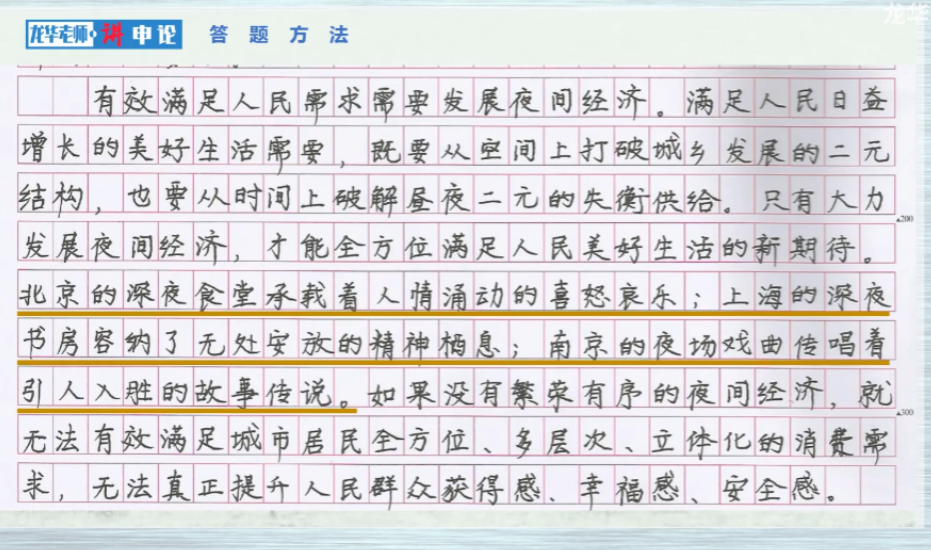 龙华
龙华老师·讲 申论 答题方法
有效满足人民需求需要发展夜间经济。满足人民日益
增长的美好生活需要，既要从空间上打破城乡发展的二元
结构，也要从时间上破解昼夜二元的失衡供给。只有大力
200
发展夜间经济，才能全方位满足人民美好生活的新期待。
北京的深夜食堂承载着人情涌动的喜怒哀乐；上海的深夜
书房容纳了无处安放的精神栖息；南京的夜场戏曲传唱着
引人入胜的故事传说。如果没有繁荣有序的夜间经济，就
300
无法有效满足城市居民全方位、多层次、立体化的消费需
求，无法真正提升人民群众获得感、幸福感、安全感。